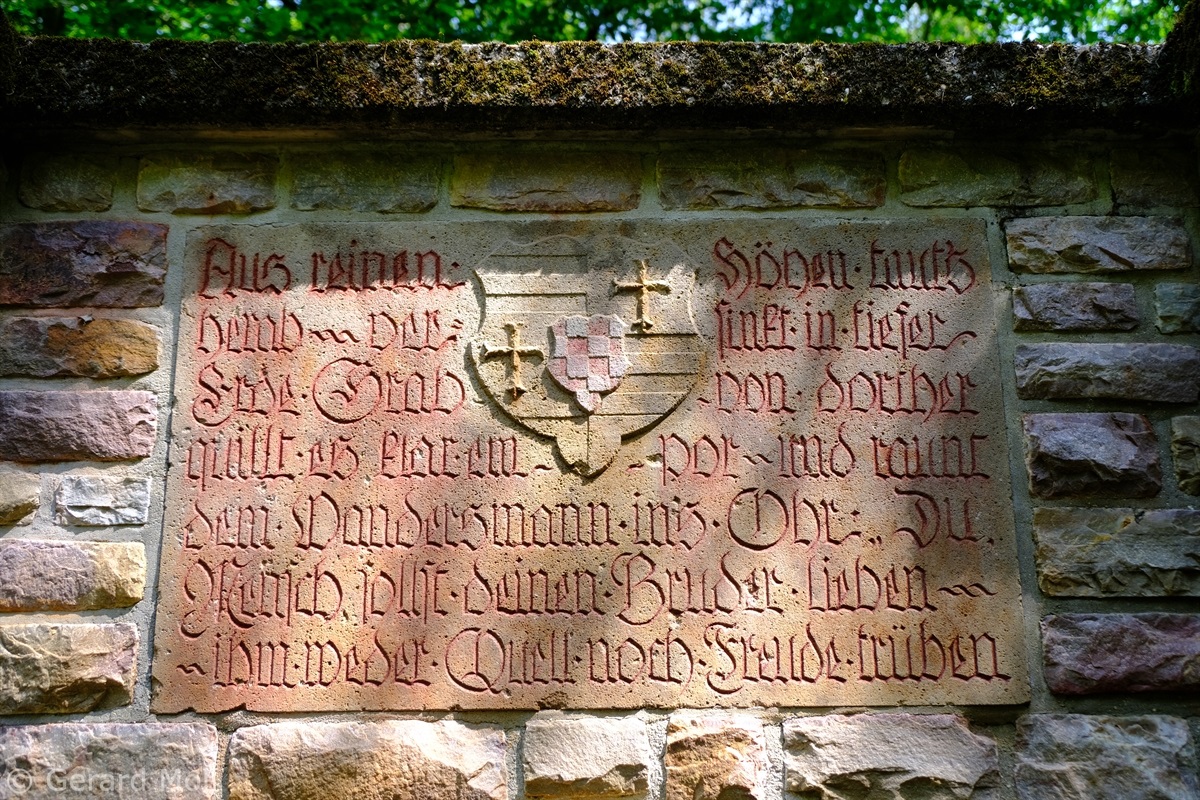 Aus reinen · Höhen · taut's
herab ~ ver= sinkt · in · tiefer ~
Erde · Grab - von · dorther
quillt · es · klar · em - - por ~ und raunt
dem · Wandersmann · in's · Ohr : „ Du,
Mensch sollst · deinen · Bruder · lieben ~
~ ihm · weder · Quell · noch · Freude · trüben
© Gerard Mol